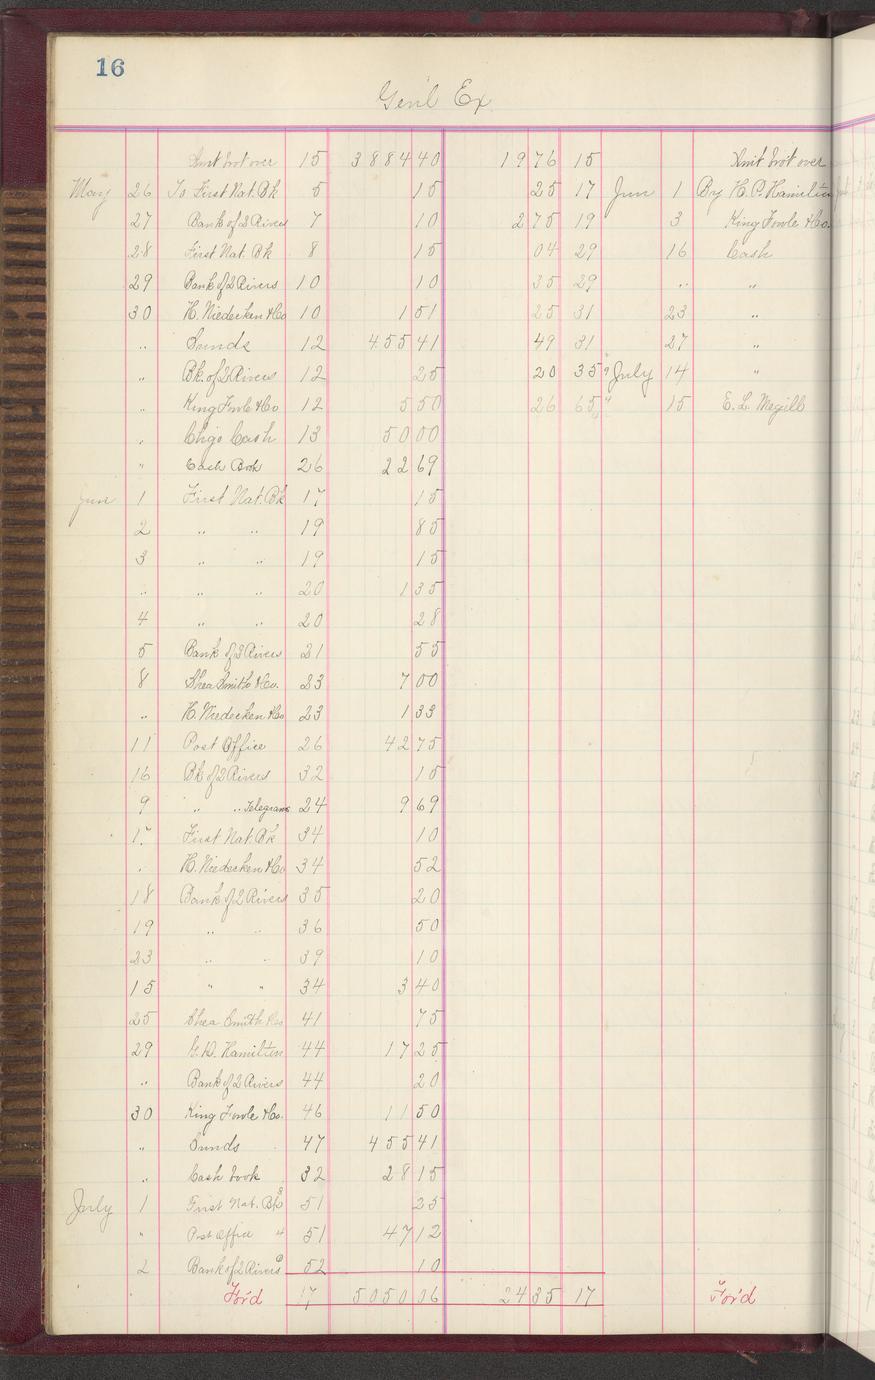 16
Gen'l Ex
Amt bro't over 15 3884 40 19 76 15 Amt bro't over
May 26 To First Nat. Bk 5 15 25 17 Jun 1 By H. P. Hamilton
27 Bank of 2 Rivers 7 10 2 75 19 3 King Fowle & Co.
28 First Nat. Bk 8 15 04 29 16 Cash
29 Bank of 2 Rivers 10 10 35 29 " "
30 H. Niedecken & Co 10 1 51 25 31 23 "
" Sunds 12 455 41 49 31 27 "
" Bk. of 2 Rivers 12 25 20 35 July 14 "
" King Fowle & Co 12 5 50 26 65 15 E. L. Megill
" Chgo Cash 13 50 00
" Cash Book 26 22 69
Jun 1 First Nat. Bk 17 15
2 " " 19 85
3 " " 19 15
" " " 20 1 35
4 " " 20 28
5 Bank of 2 Rivers 21 55
8 Shea Smith & Co. 23 7 00
" H. Niedecken & Co 23 1 33
11 Post Office 26 42 75
16 Bk of 2 Rivers 32 15
9 " " Telegrams 24 9 69
17 First Nat. Bk 34 10
" H. Niedecken & Co 34 52
18 Bank of 2 Rivers 35 20
19 " " 36 50
23 " " 39 10
15 " " 34 3 40
25 Shea Smith & Co 41 75
29 Hamilton 44 17 25
" Bank of 2 Rivers 44 20
30 King Fowle & Co. 46 11 50
" Sunds 47 455 41
" Cash book 32 28 15
July 1 First Nat. Bk 51 25
" Post Office 51 47 12
2 Bank of 2 Rivers 52 10
For'd 17 5050 06 24 35 17 For'd